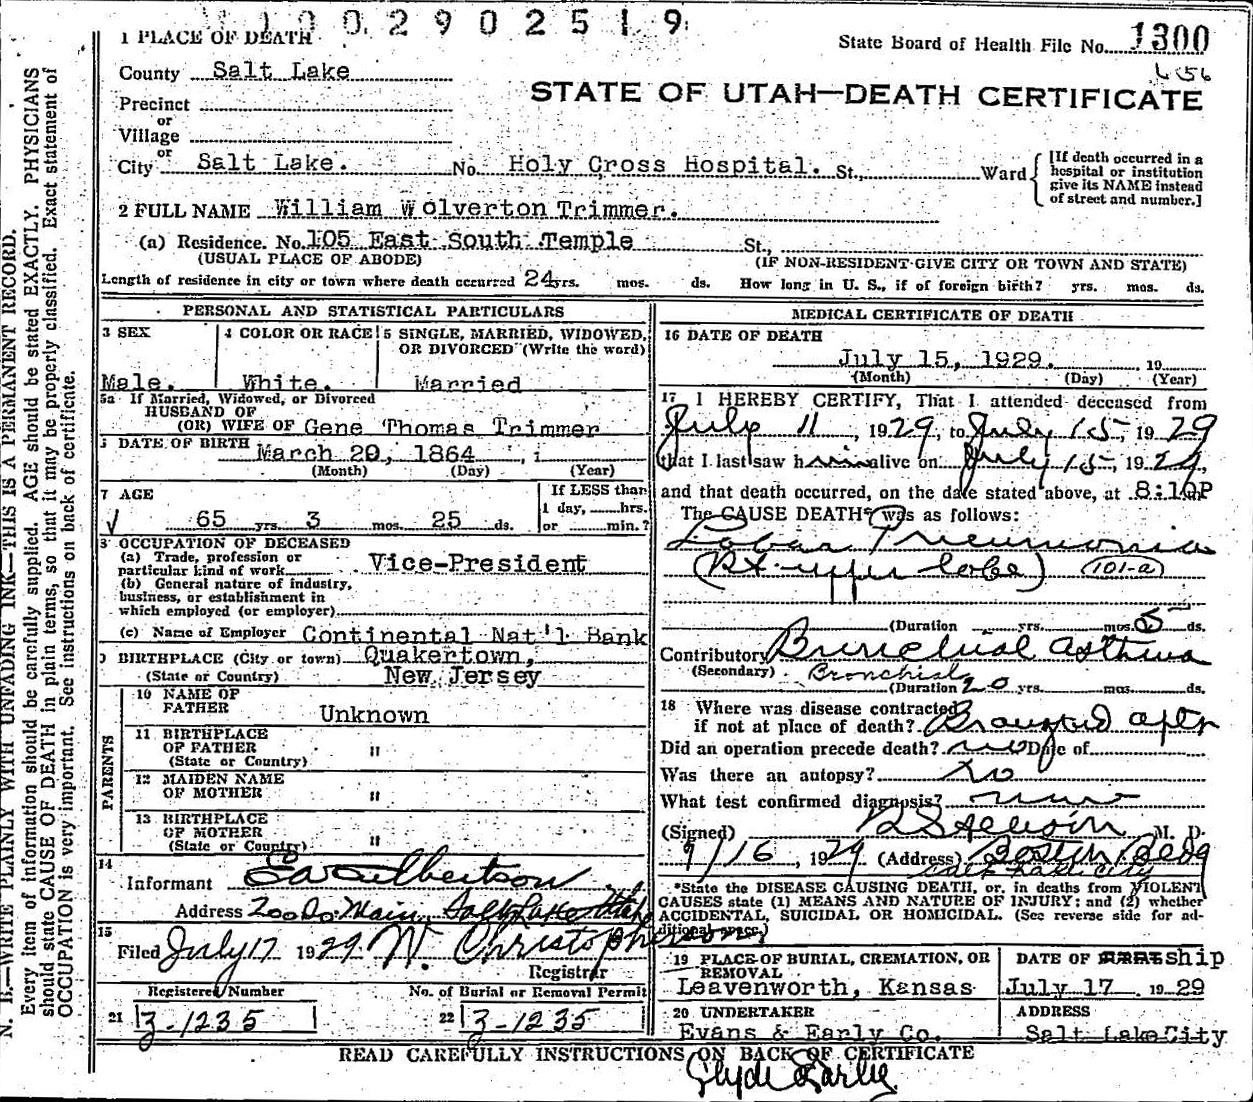 1 0 0 2 9 0 2 5 1 9
1 PLACE OF DEATH
State Board of Health File No. 1300
County Salt Lake
STATE OF UTAH—DEATH CERTIFICATE
Precinct
or
Village
or
City Salt Lake. No. Holy Cross Hospital. St., Ward
[If death occurred in a
hospital or institution
give its NAME instead
of street and number.]
2 FULL NAME William Wolverton Trimmer.
(a) Residence. No. 105 East South Temple St.,
(USUAL PLACE OF ABODE) (IF NON-RESIDENT GIVE CITY OR TOWN AND STATE)
Length of residence in city or town where death occurred 24 yrs. mos. ds. How long in U. S., if of foreign birth? yrs. mos. ds.
PERSONAL AND STATISTICAL PARTICULARS
3 SEX
Male.
4 COLOR OR RACE
White.
5 SINGLE, MARRIED, WIDOWED,
OR DIVORCED (Write the word)
Married
5a If Married, Widowed, or Divorced
HUSBAND OF
(OR) WIFE OF Gene Thomas Trimmer
DATE OF BIRTH March 20, 1864
(Month) (Day) (Year)
7 AGE
65 yrs. 3 mos. 25 ds.
If LESS than
1 day, hrs.
or min.?
8 OCCUPATION OF DECEASED
(a) Trade, profession or
particular kind of work Vice-President
(b) General nature of industry,
business, or establishment in
which employed (or employer)
(c) Name of Employer Continental Nat'l Bank
9 BIRTHPLACE (City or town) Quakertown,
(State or Country) New Jersey
PARENTS
10 NAME OF
FATHER Unknown
11 BIRTHPLACE
OF FATHER "
(State or Country)
12 MAIDEN NAME
OF MOTHER "
13 BIRTHPLACE
OF MOTHER "
(State or Country)
14
Informant Culbertson
Address 200 So Main, Salt Lake Utah
15
Filed July 17 1929 W. Christopherson
Registrar
Registered Number
21 3-1235
No. of Burial or Removal Permit
22 3-1235
MEDICAL CERTIFICATE OF DEATH
16 DATE OF DEATH
July 15, 1929. 19
(Month) (Day) (Year)
17 I HEREBY CERTIFY, That I attended deceased from
July 11, 1929, to July 15, 1929
that I last saw him alive on July 15, 1929,
and that death occurred, on the date stated above, at 8:10P
The CAUSE DEATH* was as follows:
Lobar Pneumonia
(Rt. upper lobe) (101-a)
(Duration yrs. mos. 5 ds.
Contributory Bronchial Asthma
(Secondary) Bronchial
(Duration 20 yrs. mos. ds.
18 Where was disease contracted
if not at place of death? apts
Did an operation precede death? no Date of
Was there an autopsy? no
What test confirmed diagnosis?
(Signed) M. D.
7/16, 1929 (Address) Boston Bldg
Salt Lake City
*State the DISEASE CAUSING DEATH, or, in deaths from VIOLENT
CAUSES state (1) MEANS AND NATURE OF INJURY; and (2) whether
ACCIDENTAL, SUICIDAL OR HOMICIDAL. (See reverse side for ad-
ditional space.)
19 PLACE OF BURIAL, CREMATION, OR
REMOVAL
Leavenworth, Kansas
DATE OF ship
July 17 1929
20 UNDERTAKER
Evans & Early Co.
ADDRESS
Salt Lake City
READ CAREFULLY INSTRUCTIONS ON BACK OF CERTIFICATE
Clyde Early
N. B.—WRITE PLAINLY WITH UNFADING INK—THIS IS A PERMANENT RECORD.
Every item of information should be carefully supplied. AGE should be stated EXACTLY. PHYSICIANS
should state CAUSE OF DEATH in plain terms, so that it may be properly classified. Exact statement of
OCCUPATION is very important. See instructions on back of certificate.